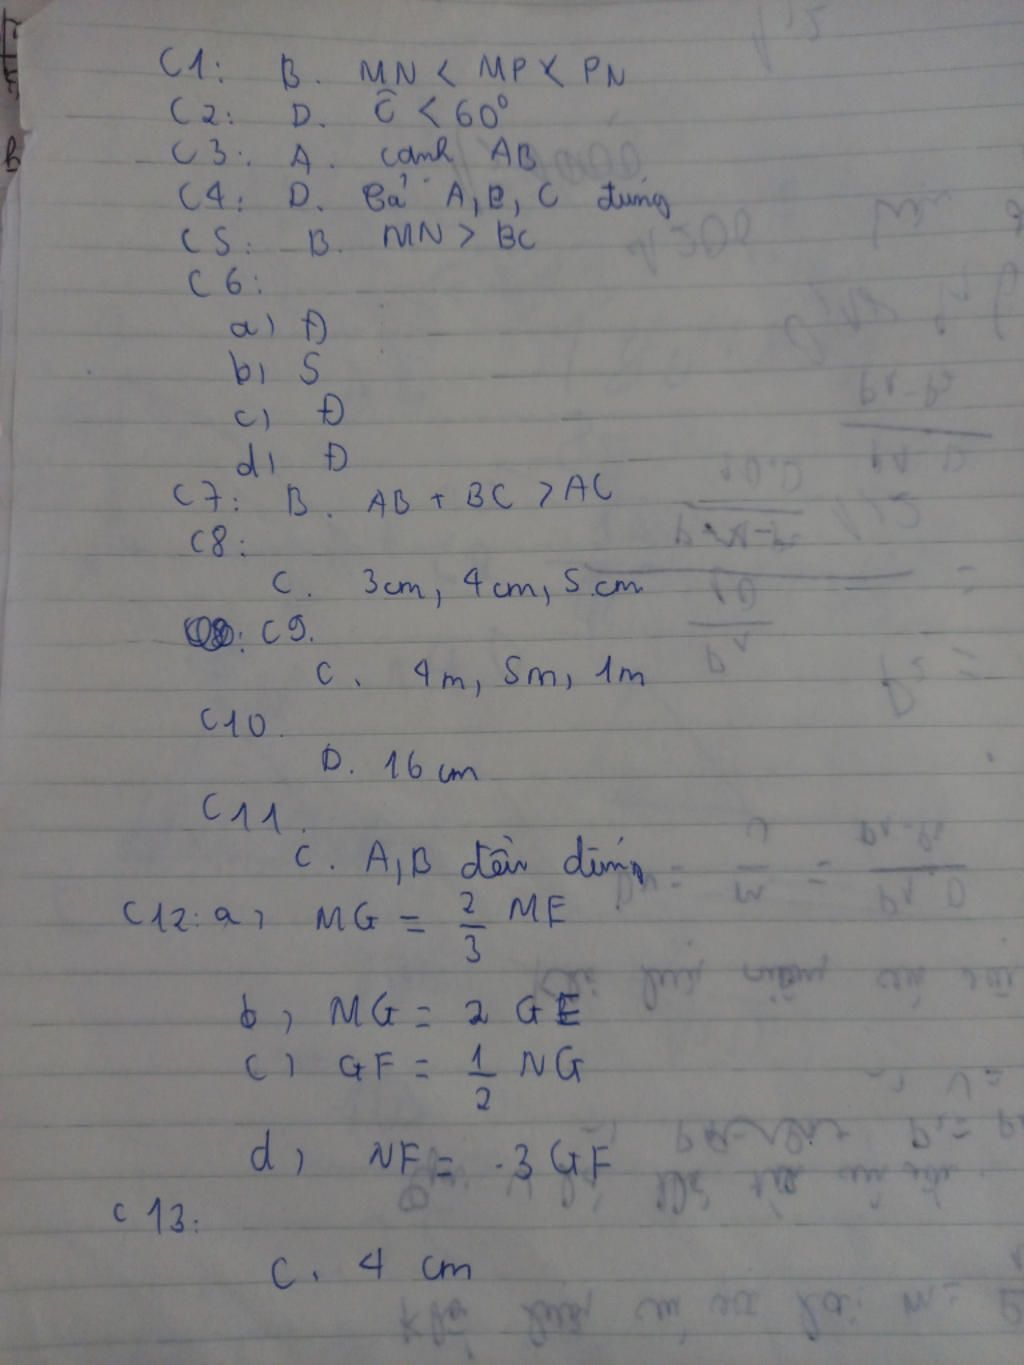 C1: B. MN < MP < PN
C2: D. Ĉ < 60°
C3: A. cạnh AB
C4: D. Cả A, B, C đúng
C5: B. MN > BC
C6:
a) Đ
b) S
c) Đ
d) Đ
C7: B. AB + BC > AC
C8:
C. 3cm, 4cm, 5cm
C9.
C. 4m, 5m, 1m
C10.
D. 16cm
C11.
C. A, B đều đúng
C12: a) MG = 2/3 ME
b) MG = 2 GE
c) GF = 1/2 NG
d) NF = 3 GF
C13:
C. 4 cm